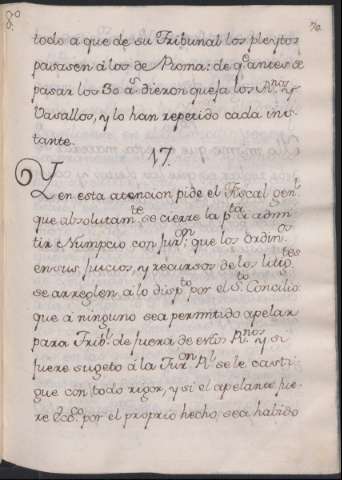 todo a que de su Tribunal los pleytos
pasasen á los de Roma: de q.e antes de
pasar los 30 a.s dieron queja los R.nos y
Vasallos, y lo han repetido cada ins-
tante.
17.
Y en esta atencion pide el Fiscal gen.l
que absolutam.te se cierre la p.ta á admi-
tir Numpcio con jur.on; que los Ordin.os
en sus juicios, y recursos de los litig.tes
se arreglen á lo disp.to por el S.to Concilio:
que á ninguno sea permitido apelar
para Trib.l de fuera de estos R.nos y si
fuere sugeto á la Jur.on R.l se le casti-
gue con todo rigor, y si el apelante fue-
re Ecc.co por el proprio hecho sea habido